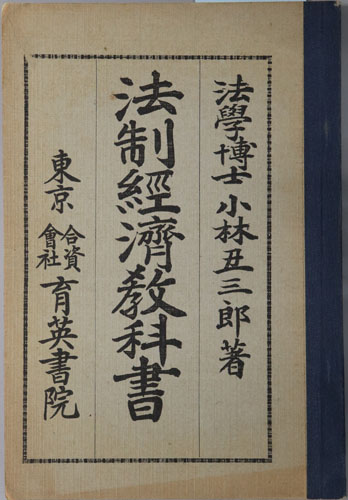 法學博士 小林丑三郎著
法制經濟敎科書
東京 合資會社 育英書院